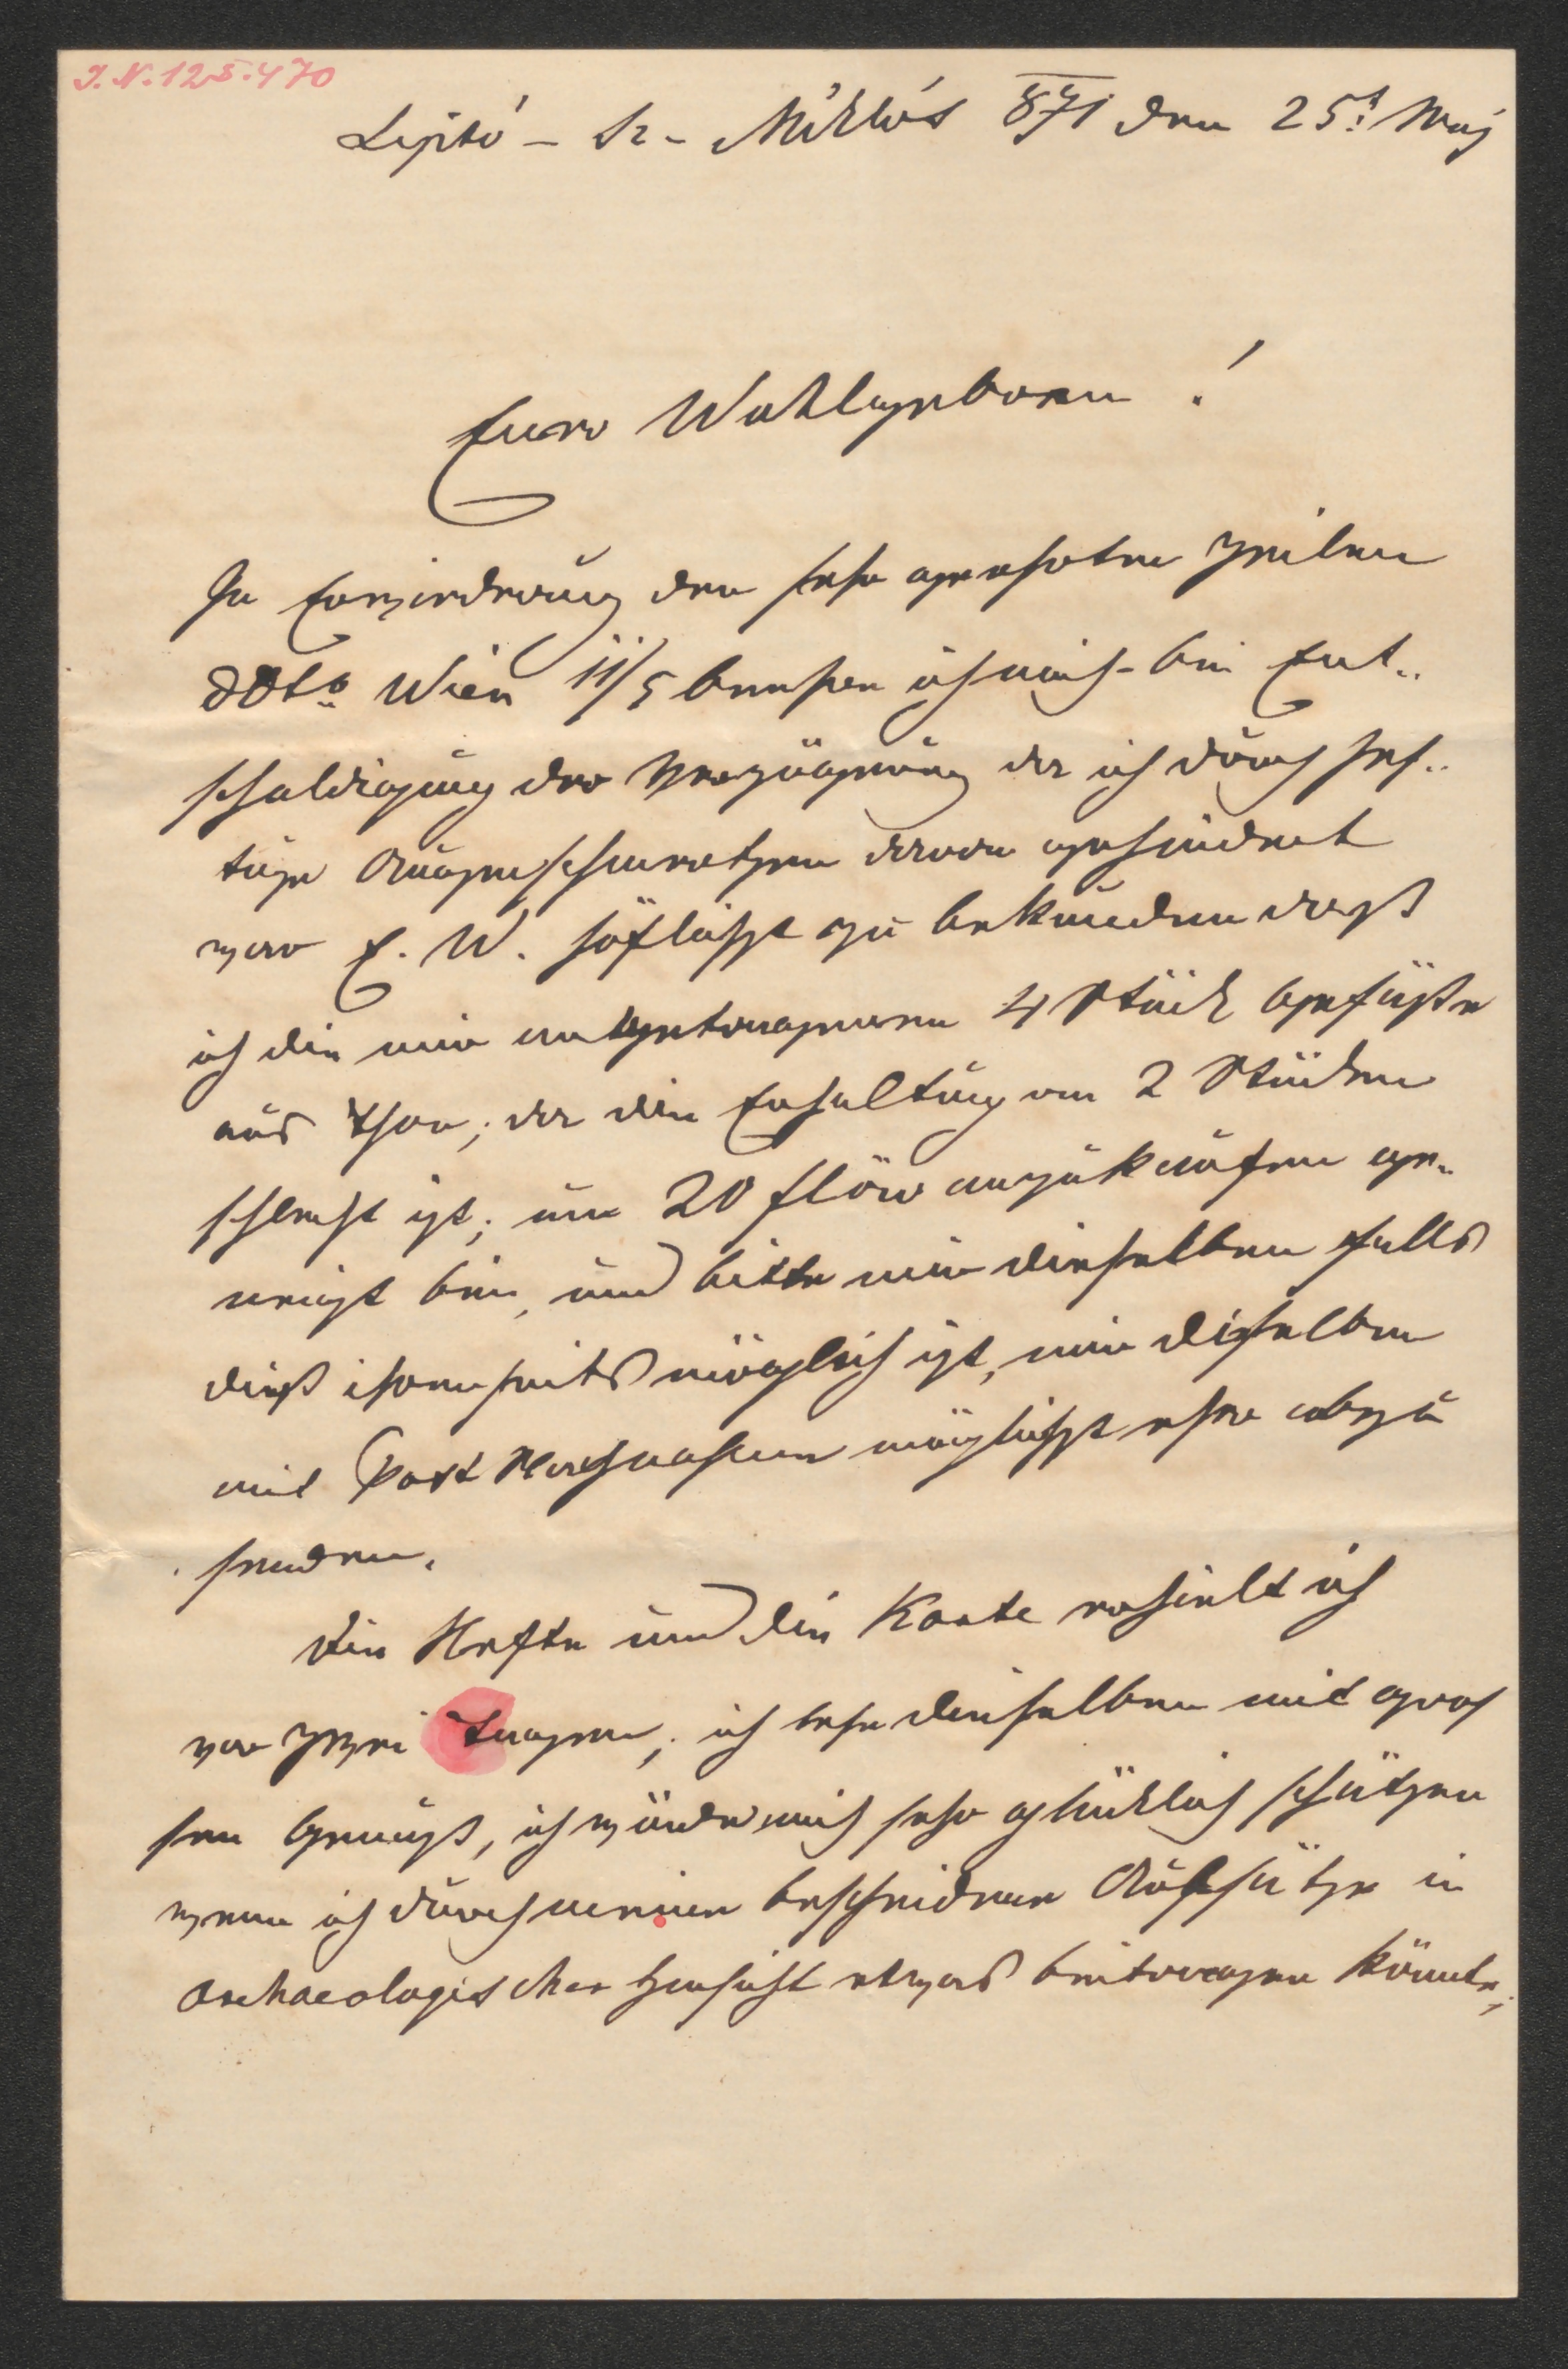 I. N. 125.470
Liptó - Sz - Miklós 871 den 25t Maj
Euer Wohlgeboren!
In Erwiederung der sehr geehrten Zeilen
ddto Wien 11/5 beehre ich mich bei Ent-
schuldigung der Verzögerung da ich durch hef-
tige Augenschmerzen davon gehindert
war E. W. höflichst zu bekunden daß
ich die mir angetragenen 4 Stück Gefäße
aus Thon, da die Erhaltung von 2 Stücken
schlecht ist, um 20 flöw anzukaufen ge-
neigt bin, und bitte mir dieselben falls
dieß ihrerseits möglich ist, mir dieselben
mit Post Nachnahme möglichst eher abzu
senden.
Die Hefte und die Karte erhielt ich
vor zwei Tagen, ich lese dieselben mit gros
sen Genuß, ich würde mich sehr glücklich schätzen
wenn ich durch meine bescheidene Aufsätze in
archaeologischer Hinsicht etwas beitragen könnte,